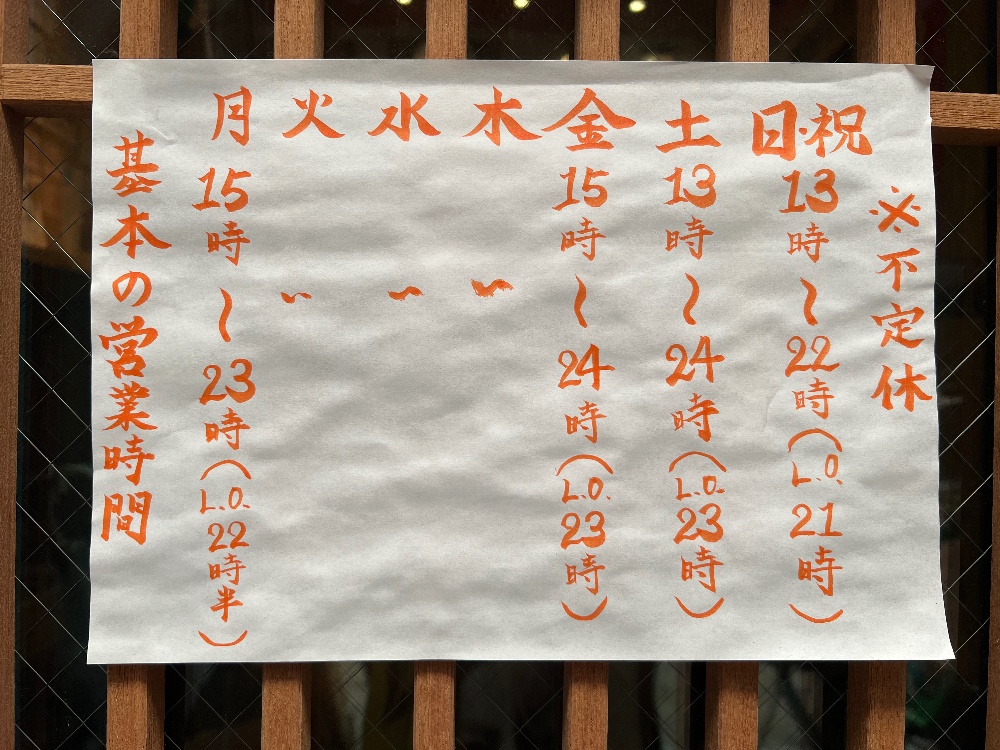 基本の営業時間
月 15時〜23時(L.O.22時半)
火 〃
水 〃
木 〃
金 15時〜24時(L.O.23時)
土 13時〜24時(L.O.23時)
日・祝 13時〜22時(L.O.21時)
※不定休